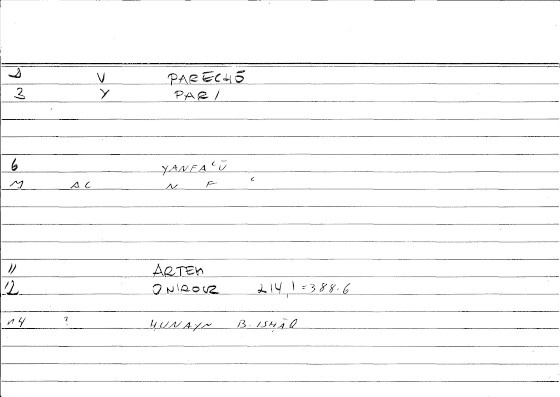 2 V PARECHŌ
3 Y PARI
6 YANFAʿU
M AC N F ʿ
11 ARTEM
12 ONIROCR 214,1=388.6
14 ? HUNAYN B. ISHĀQ